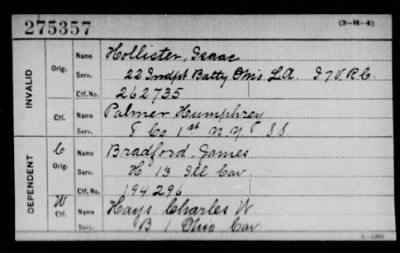 275357 (3-H-4)
INVALID
Orig. Name Hollister, Isaac
Serv. 22 Indpt Batty Ohio L.A. I 7 V.R.C.
Ctf. No. 262735
Ctf. Name Palmer Humphrey
Serv. Co 1st N.Y. S.S
DEPENDENT
C Orig. Name Bradford, James
Serv. H 13 Ill Cav
Ctf. No. 194296
W Ctf. Name Hays Charles W.
Serv. B 1 Ohio Cav